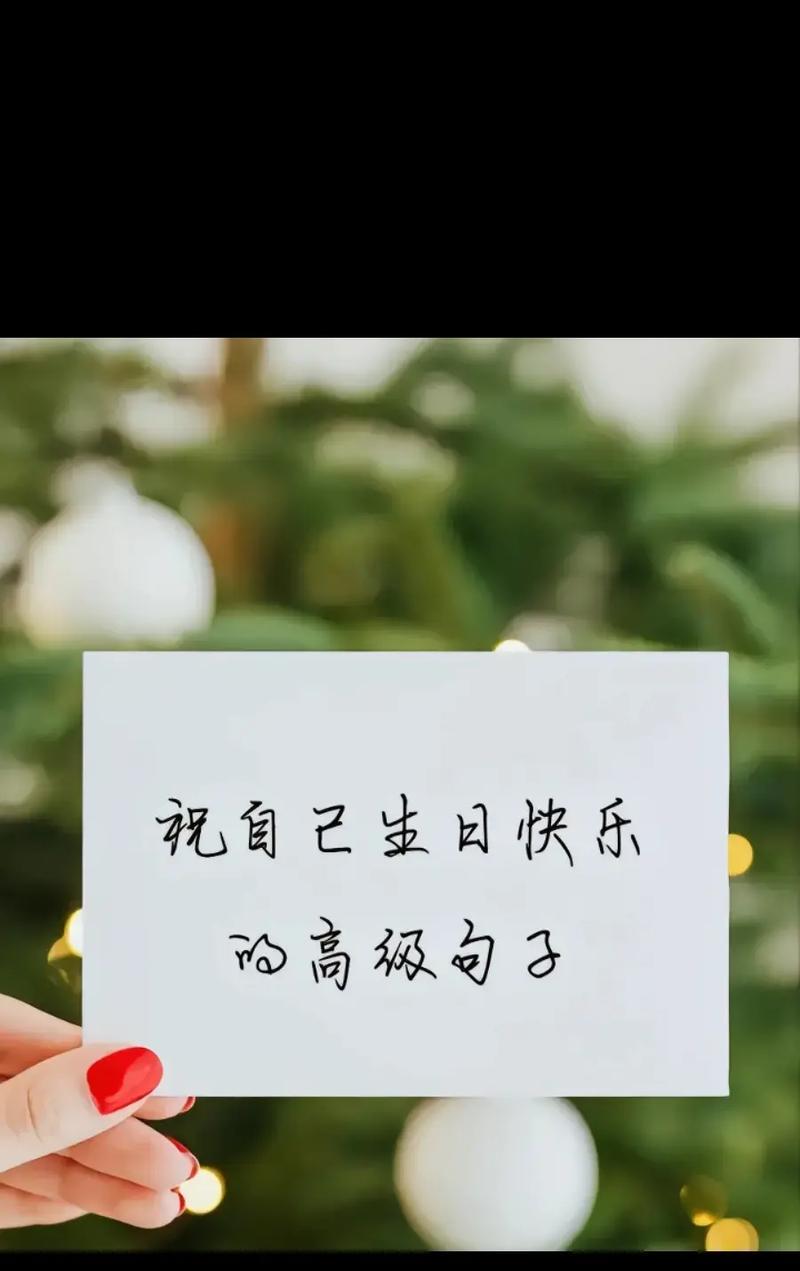 祝自己生日快乐
的高级句子